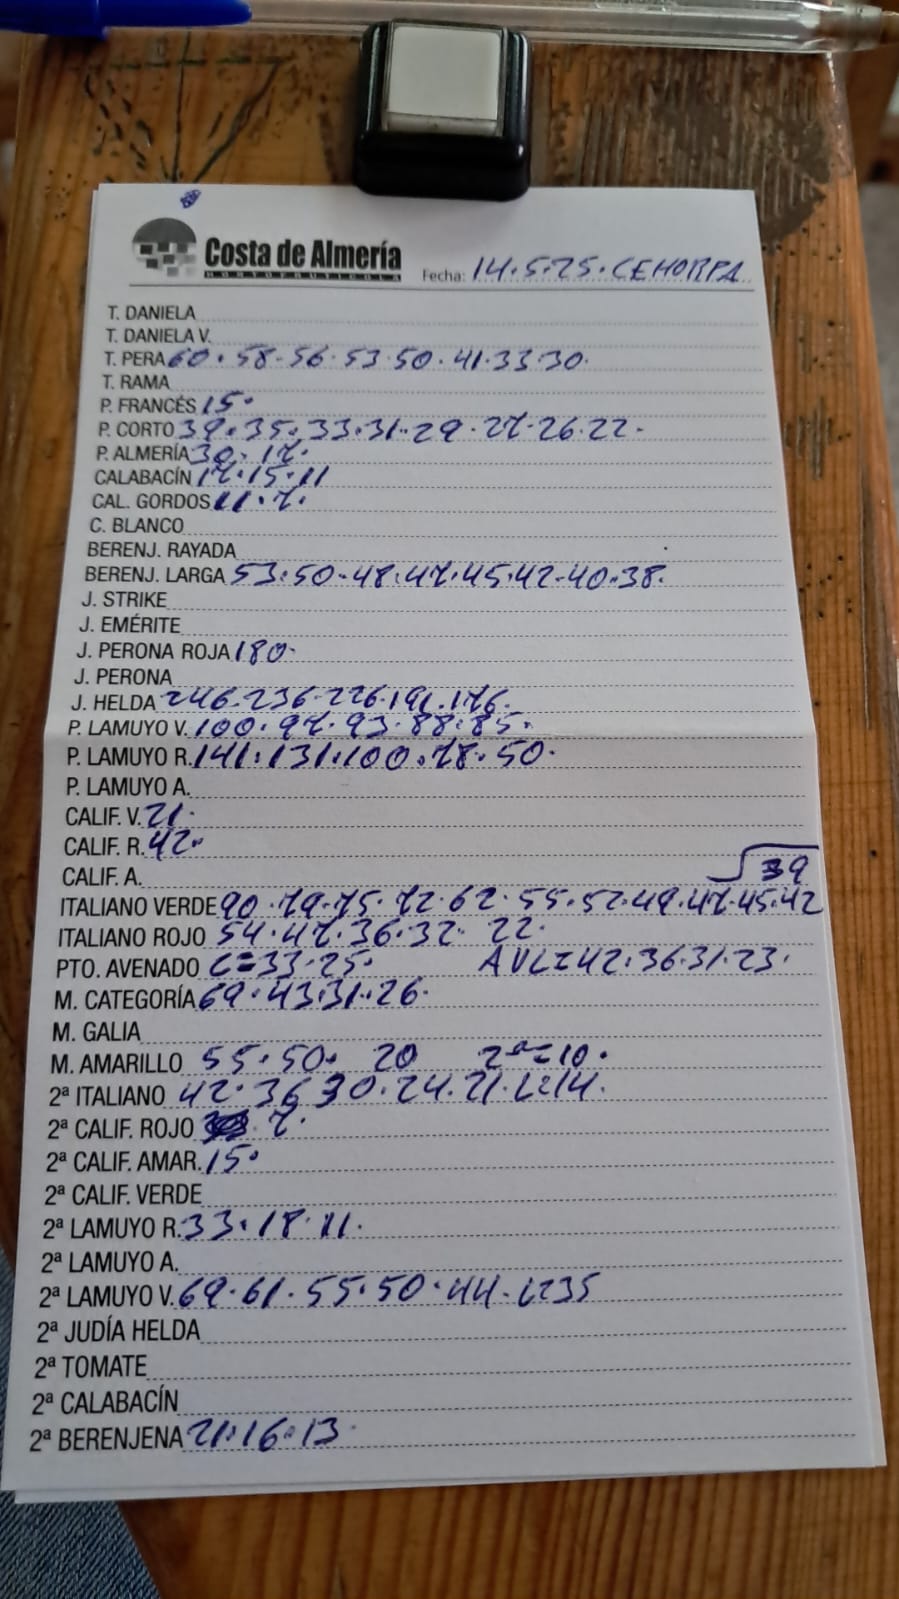 Costa de Almería
HORTOFRUTICOLA
Fecha: 14.5.25. CEHORPA
T. DANIELA
T. DANIELA V.
T. PERA 60. 58-56.53.50.41.33.30.
T. RAMA
P. FRANCÉS 15.
P. CORTO 39.35.33.31.29.27.26.22.
P. ALMERÍA 30.17.
CALABACÍN 17.15.11
CAL. GORDOS 11.7.
C. BLANCO
BERENJ. RAYADA
BERENJ. LARGA 53.50-48.47.45.42-40.38.
J. STRIKE
J. EMÉRITE
J. PERONA ROJA 180.
J. PERONA
J. HELDA 246.236.226.191.176.
P. LAMUYO V. 100.97.93.88.85.
P. LAMUYO R. 141.131.100.78.50.
P. LAMUYO A.
CALIF. V. 21.
CALIF. R. 42.
CALIF. A.
39
ITALIANO VERDE 90.79.75.72.62.55.52.49.47.45.42
ITALIANO ROJO 54.47.36.32. 22.
PTO. AVENADO C=33.25. AVL=42.36.31.23.
M. CATEGORÍA 69.43.31.26.
M. GALIA
M. AMARILLO 55.50. 20 2ª=10.
2ª ITALIANO 42.36 30.24.21.L=14.
2ª CALIF. ROJO 7.
2ª CALIF. AMAR. 15.
2ª CALIF. VERDE
2ª LAMUYO R. 33.18.11.
2ª LAMUYO A.
2ª LAMUYO V. 69.61.55.50.44.L=35
2ª JUDÍA HELDA
2ª TOMATE
2ª CALABACÍN
2ª BERENJENA 21.16.13.